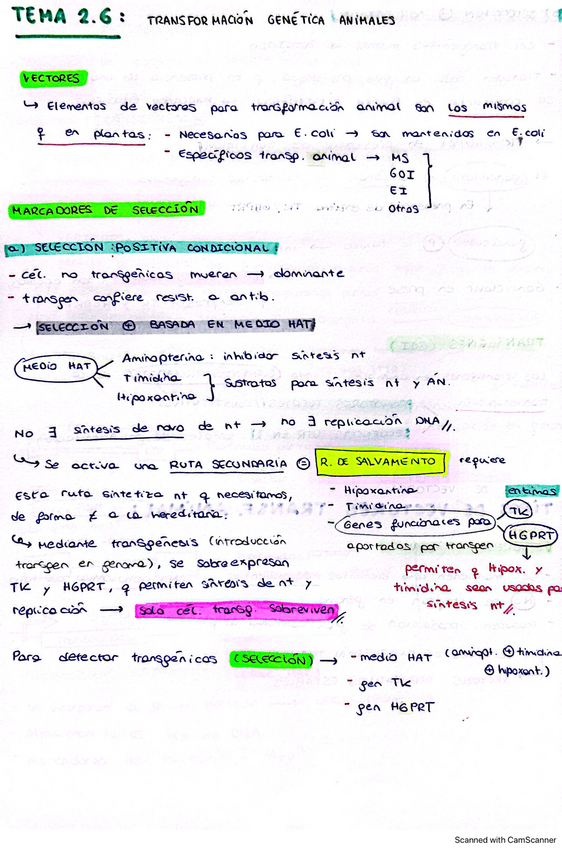 TEMA 2.6: TRANSFORMACIÓN GENÉTICA ANIMALES
VECTORES
↳ Elementos de vectores para transformación animal son los mismos
q en plantas: - Necesarios para E. coli → son mantenidos en E. coli
- Específicos transp. animal → MS
GOI
EI
Otros
MARCADORES DE SELECCIÓN
a) SELECCIÓN POSITIVA CONDICIONAL:
- cél. no transgénicas mueren → dominante
- transgen confiere resist. a antib.
→ SELECCIÓN ⊕ BASADA EN MEDIO HAT
MEDIO HAT
Aminopterina: inhibidor síntesis nt
Timidina
Hipoxantina
Sustratos para síntesis nt y ÁN.
No ∃ síntesis de novo de nt → no ∃ replicación DNA//.
↳ Se activa una RUTA SECUNDARIA = R. DE SALVAMENTO requiere
- Hipoxantina
- Timidina
- Genes funcionales para
aportados por transgen
enzimas
TK
HGPRT
↓
permiten q Hipox. y
timidina sean usados pa
síntesis nt//.
Esta ruta sintetiza nt q necesitamos,
de forma ≠ a la hereditaria:
↳ Mediante transgénesis (introducción
transgen en genoma), se sobreexpresan
TK y HGPRT, q permiten síntesis de nt y
replicación → solo cél. transg. sobreviven//.
Para detectar transgénicos (SELECCIÓN) → - medio HAT (aminopt. ⊕ timidina
⊕ hipoxant.)
- gen TK
- gen HGPRT
Scanned with CamScanner